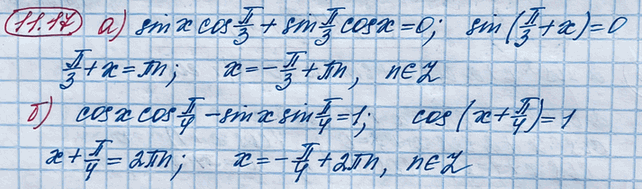 11.17 а) sin x cos π/3 + sin π/3 cos x = 0; sin (π/3 + x) = 0
π/3 + x = πn; x = -π/3 + πn, n∈Z
б) cos x cos π/4 - sin x sin π/4 = 1; cos (x + π/4) = 1
x + π/4 = 2πn; x = -π/4 + 2πn, n∈Z